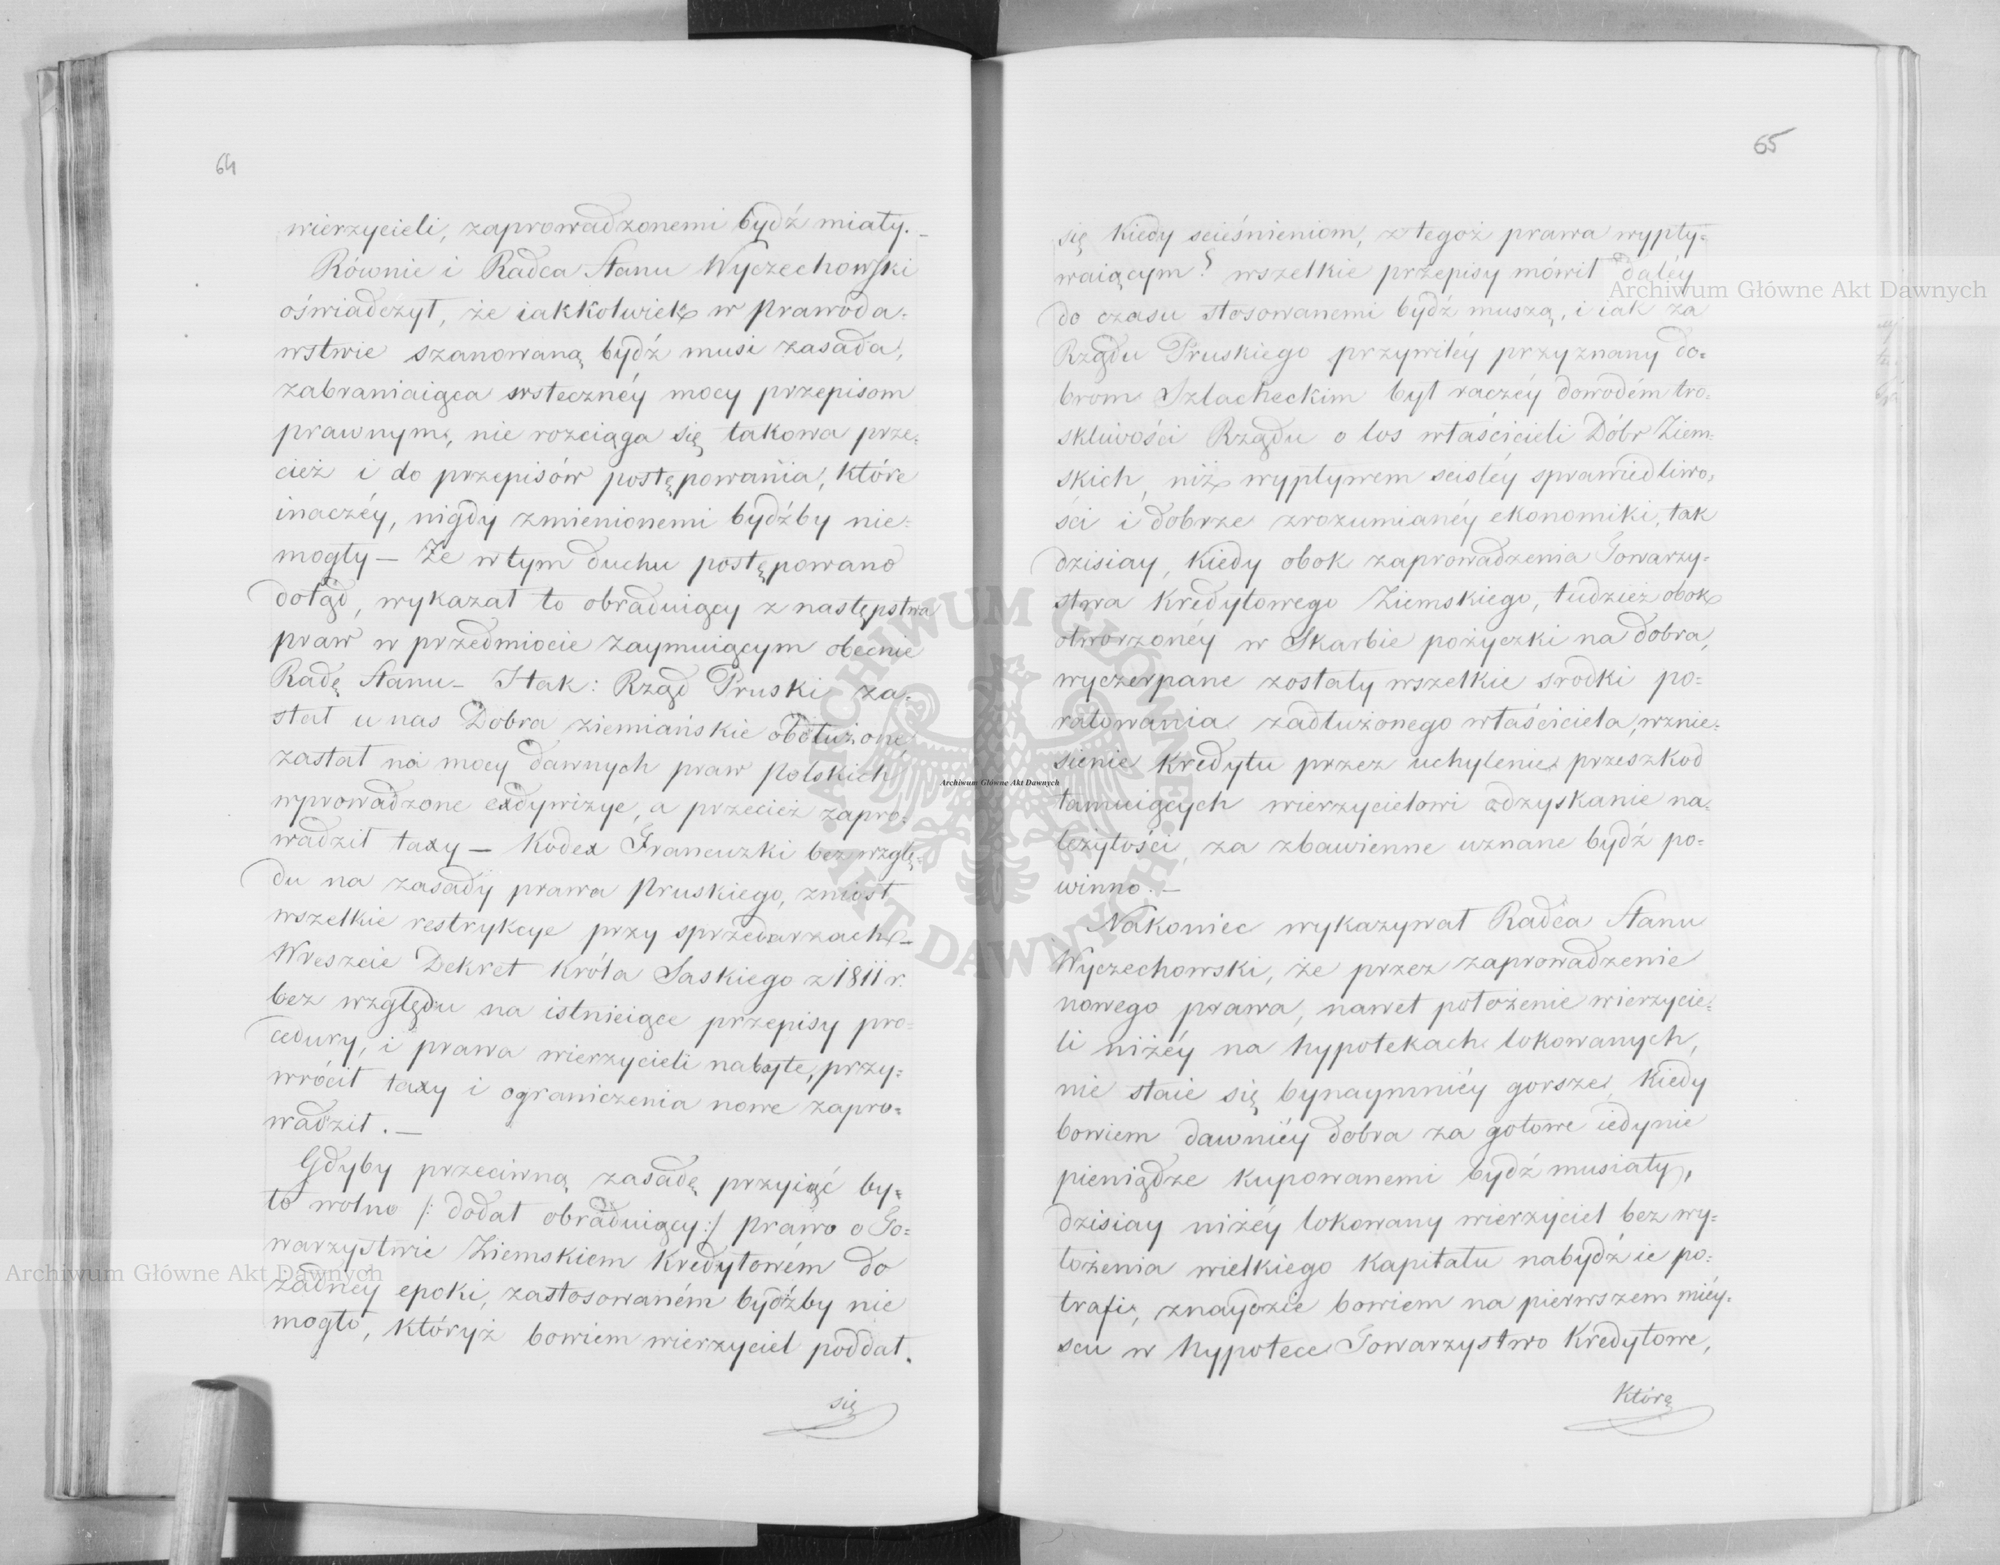 64
wierzycieli, zaprowadzonemi bydź miały. –
Równie i Radca Stanu Wyczechowski
oświadczył, że iakkolwiek w prawoda-
wstwie szanowaną bydź musi zasada,
zabraniaiąca wstecznéy mocy przepisom
prawnym, nie rozciąga się takowa prze-
cież i do przepisów postępowania, które
inaczéy, nigdy zmienionemi bydźby nie-
mogły — Że w tym duchu postępowano
dotąd, wykazał to obraduiący z następstwa
praw w przedmiocie zaymuiącym obecnie
Radę Stanu – I tak: Rząd Pruski za-
stał u nas Dobra ziemiańskie obdłużone
zastał na mocy dawnych praw polskich
wprowadzone exdywizye, a przecież zapro-
wadził taxy — Kodex Francuzki bez wzglę-
du na zasady prawa Pruskiego, zniosł
wszelkie restrykcye przy sprzedarzach –
Wreszcie Dekret Króla Saskiego z 1811 r.
bez względu na istnieiące przepisy pro-
cedury, i prawa wierzycieli nabyte, przy-
wrócił taxy i ograniczenia nowe zapro-
wadził. —
Gdyby przeciwną zasadę przyiąć by-
ło wolno /: dodał obraduiący :/ prawo o To-
warzystwie Ziemskiem Kredytowém do
żadnéy epoki, zastosowaném bydźby nie
mogło, któryż bowiem wierzyciel poddał.
się
65
się kiedy scieśnieniom, z tegoż prawa wypły-
waiącym? wszelkie przepisy mówił daléy
do czasu stosowanemi bydź muszą, i iak za
Rządu Pruskiego przywiléy przyznany do-
brom Szlacheckim był raczéy dowodém tro-
skliwości Rządu o los właścicieli Dóbr Ziem-
skich, niż wypływem scisłéy sprawiedliwo-
ści i dobrze zrozumianéy ekonomiki, tak
dzisiay, kiedy obok zaprowadzenia Towarzy-
stwa Kredytowego Ziemskiego, tudzież obok
otworzonéy w Skarbie pożyczki na dobra,
wyczerpane zostały wszelkie srodki po-
ratowania zadłużonego właściciela, wznie-
sienie kredytu przez uchylenie przeszkod
tamuiących wierzycielowi odzyskanie na-
leżytości, za zbawienne uznane bydź po-
winno. —
Nakoniec wykazywał Radca Stanu
Wyczechowski, że przez zaprowadzenie
nowego prawa, nawet położenie wierzycie-
li niżéy na hypotekach lokowanych,
nie staie się bynaymniéy gorsze, kiedy
bowiem dawniéy dobra za gotowe iedynie
pieniądze kupowanemi bydź musiały,
dzisiay niżéy lokowany wierzyciel bez wy-
łożenia wielkiego kapitału nabydź ie po-
trafi, znaydzie bowiem na pierwszem miéy-
scu w hypotece Towarzystwo Kredytowe,
Którę
Archiwum Główne Akt Dawnych
Archiwum Główne Akt Dawnych
Archiwum Główne Akt Dawnych
ARCHIWUM GŁÓWNE AKT DAWNYCH